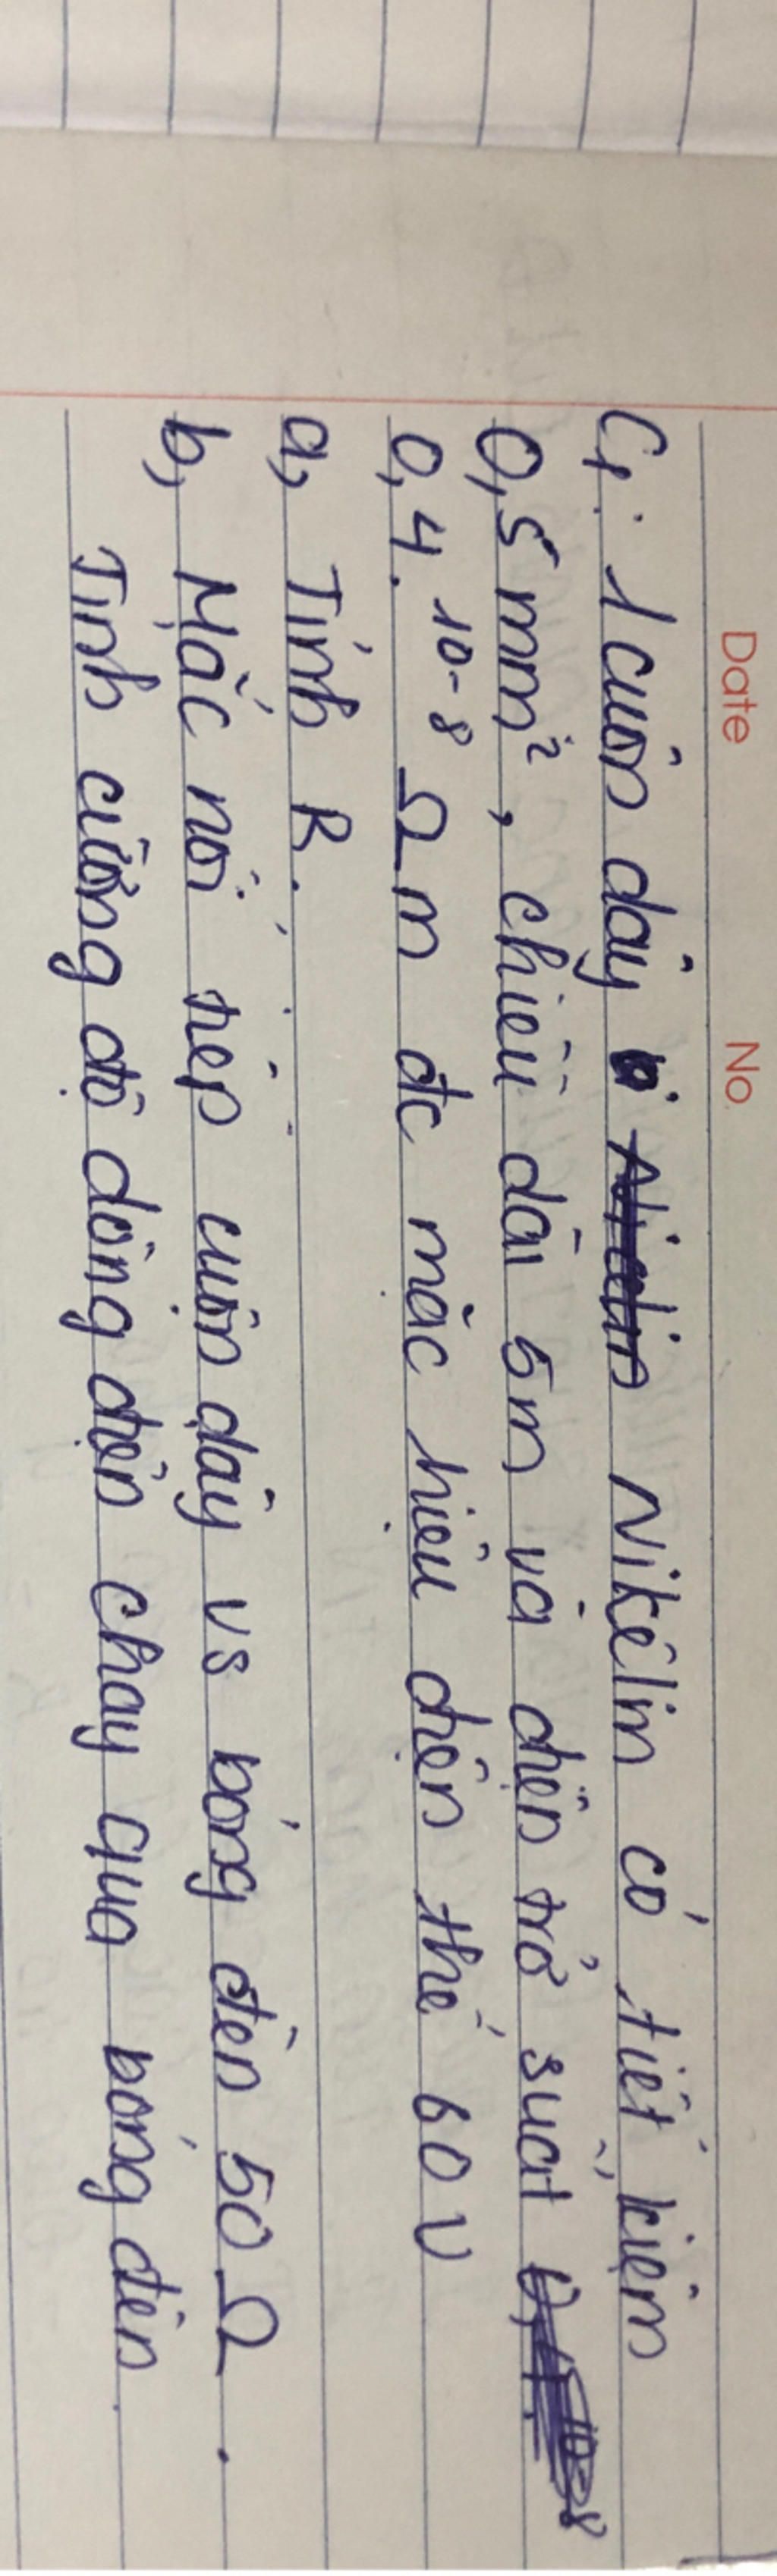 Date No.
C1: 1 cuộn dây Nikêlin có tiết kiệm
0,5 mm², chiều dài 5m và điện trở suất
0,4.10-8 Ωm đc mắc hiệu điện thế 60V
a, Tính R.
b, Mắc nối tiếp cuộn dây vs bóng đèn 50Ω.
Tính cường độ dòng điện chạy qua bóng đèn.